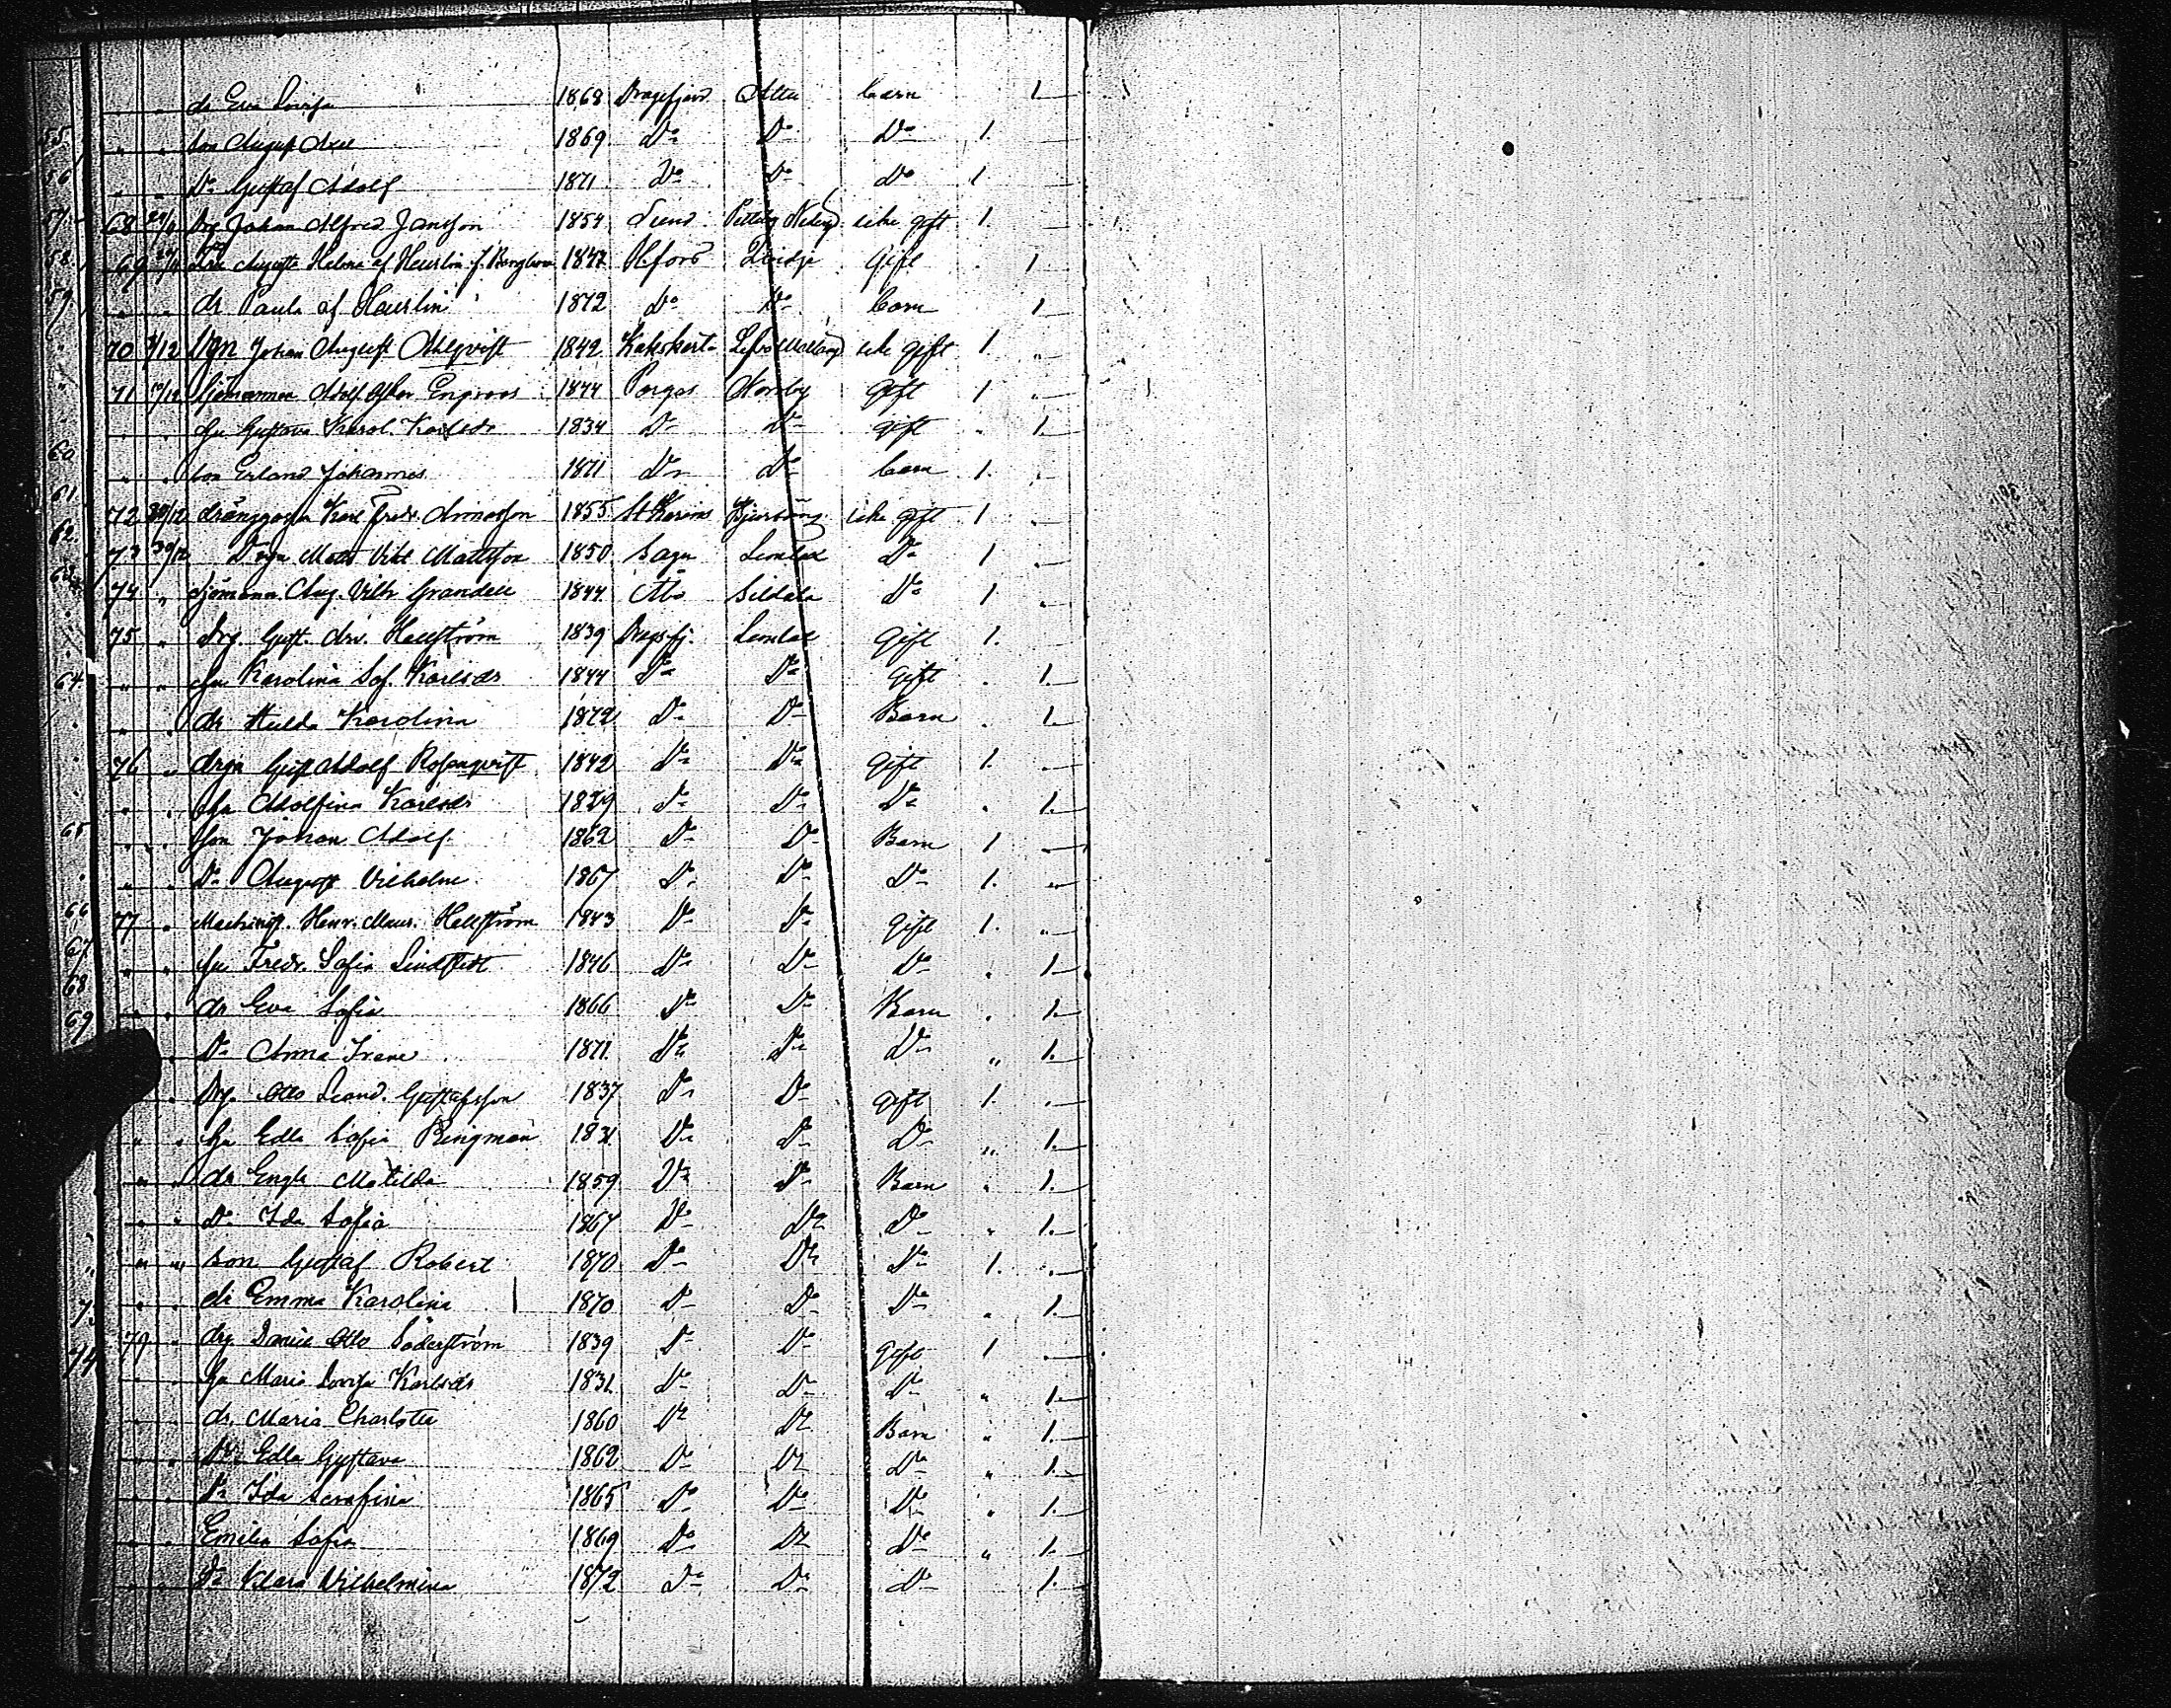 " " dr Eva Lovisa 1868 Dragsfjerd Barn 1
55 " " son August Axel 1869 Do Do Do 1.
56 " " Do Gustaf Adolf 1871 Do Do Do 1
57 68 Drg Johan Alfred Jansson 1854 Lund icke gift 1.
58 69 Augusta Helena af Heurlin f. 1847 H.fors Gift 1
59. " " dr Paula af Heurlin 1872 Do Do Barn 1
70 /12 Drgn Johan August Ahlqvist 1842 Kakskerta icke gift 1 "
71 /12 Sjömannen Adolf Engroos 1844 Pargas Norrby Gift 1 "
" " hu Gustava Karol. Karlsdr 1834 Do Do gift " 1.
60 " " son Erland Johannes 1871 Do Do Barn 1.
61 72 /12 drängossen Karl Fredr. 1855 St Karins icke gift 1
62. 73 30/12 Drgn Matts Vikt Mattsson 1850 Sagu Lemlax Do 1
63 74 " Sjömann. Aug. Vilh. Grandell 1844 Åbo Sildala Do 1 "
75 " Drg. Gust. Hellström 1839 Dragsfj. Lemlax Gift 1.
64 " " hu Karolina Sof. Karlsdr 1844 Do Do Gift " 1.
" " dr Hulda Karolina 1872 Do Do Barn " 1.
76 " drgn Gust Adolf Rosenqvist 1842 Do Do Gift 1. "
" " hu Adolfina Karlsdr 1829 Do Do Do " 1.
65 " " Son Johan Adolf 1862 Do Do Barn 1 "
" " Do August Vilhelm 1867 Do Do Do 1. "
66 77 " Machinist. Henr. Maur. Hellström 1843 Do Do Gift 1. "
67 " " hu Fredr. Sofia Lindstedt 1846 Do Do Do " 1.
68 " " dr Eva Sofia 1866 Do Do Barn " 1.
69 " Do Anna Irene 1871. Do Do Do " 1.
" Drg. Otto Leand. Gustafsson 1837 Do Do gift 1. "
" " hu Edla Sofia Ringman 1831 Do Do Do " 1.
" " dr Engla Matilda 1859 Do Do Barn " 1.
" " Do Ida Sofia 1867 Do Do Do " 1.
" " son Gustaf Robert 1870 Do Do Do 1. "
" " dr Emma Karolina 1870 Do Do Do " 1.
79 " drg Daniel Otto Söderström 1839 Do Do Gift 1 "
74 " hu Maria Lovisa Karlsdr 1831 Do Do Do " 1.
" " dr. Maria Charlotta 1860 Do Do Barn " 1.
" " Do Edla Gustava 1862 Do Do Do " 1.
" " Do Ida Serafina 1865 Do Do Do " 1.
" " Emilia Sofia 1869 Do Do Do " 1.
" " Do Klara Wilhelmina 1872 Do Do Do 1.